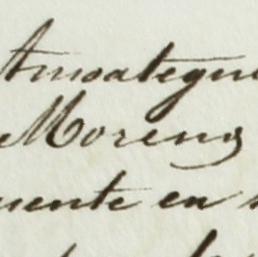 Amoategui
Moreno
uente en